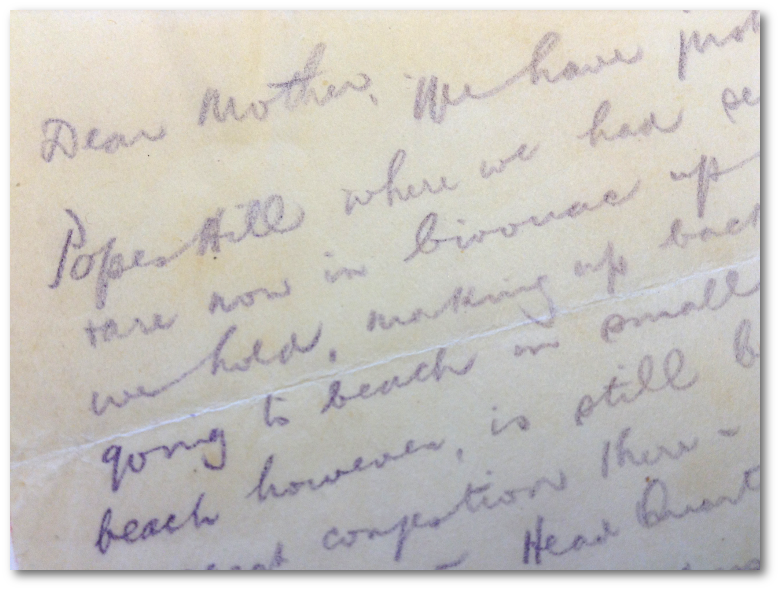 Dear Mother, We have just
Popes Hill where we had
+are now in bivouac up
we hold, making up back
going to beach in small
beach however, is still b
great congestion there -
Head Quart